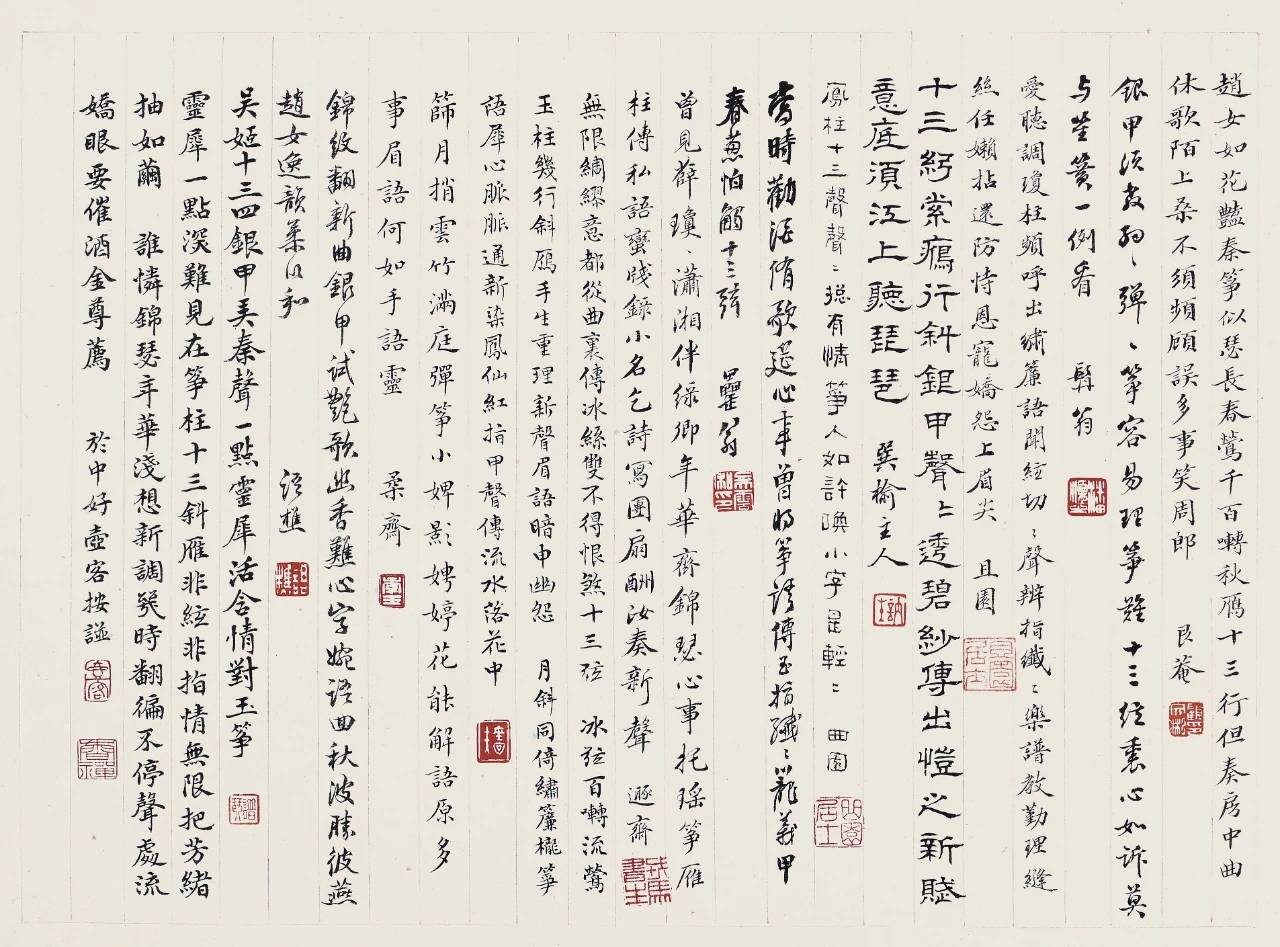 趙女如花豔秦箏似瑟長春鶯千百囀秋鴈十三行但奏房中曲
休歌陌上桑不須頻顧誤多事笑周郎 艮菴
銀甲須教勿〻彈〻箏容易理箏難十三絃裏心如訴莫
与箜篌一例看 髯翁
愛聽調瓊柱頻呼出繡簾語聞絃切〻聲辨指纖〻樂譜教勤理縫
絲任嬾拈還防恃恩寵嬌怨上眉尖 且園
十三絃柱雁行斜銀甲聲〻透碧紗傳出愷之新賦
意底須江上聽琵琶 巽榆主人
鳳柱十三聲聲〻總有情箏人如許喚小字是輕〻 曲園
當時勸酒侑歌筵心事曾將箏語傳玉指纖〻籠義甲
春蔥怕觸十三弦 翁
曾見薛瓊〻瀟湘伴綠卿年華齊錦瑟心事托瑤箏雁
柱傳私語蠻牋錄小名乞詩寫團扇酬汝奏新聲 遯齋
無限綢繆意都從曲裏傳冰絲雙不得恨煞十三弦 冰弦百囀流鶯
玉柱幾行斜鴈手生重理新聲眉語暗申幽怨 月斜同倚繡簾櫳箏
語犀心脈脈通新染鳳仙紅指甲聲傳流水落花中
篩月捎雲竹滿庭彈箏小婢影娉婷花能解語原多
事眉語何如手語靈 柔齋
錦紋翻新曲銀甲試艷歌幽香難心字婉語回秋波勝彼燕
趙女逸韻柔以和 語樵
吴姬十三四銀甲美秦聲一點靈犀活含情對玉箏
靈犀一點深難見在箏柱十三斜雁非絃非指情無限把芳緒
抽如繭 誰憐錦瑟年華淺想新調幾時翻徧不停聲處流
嬌眼要催酒金尊薦 於中好壺客按謎